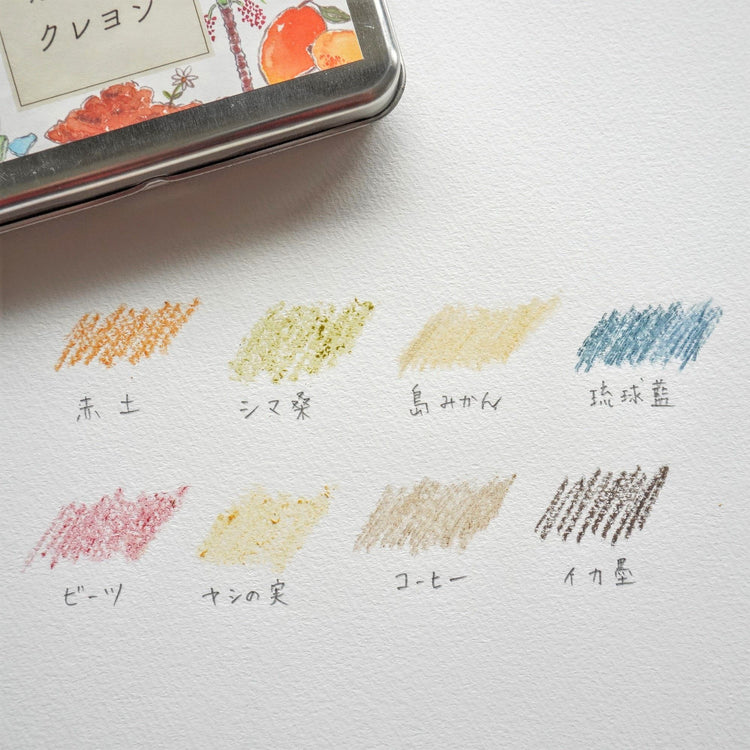 クレヨン
赤土
シマ桑
島みかん
琉球藍
ビーツ
ヤシの実
コーヒー
イカ墨